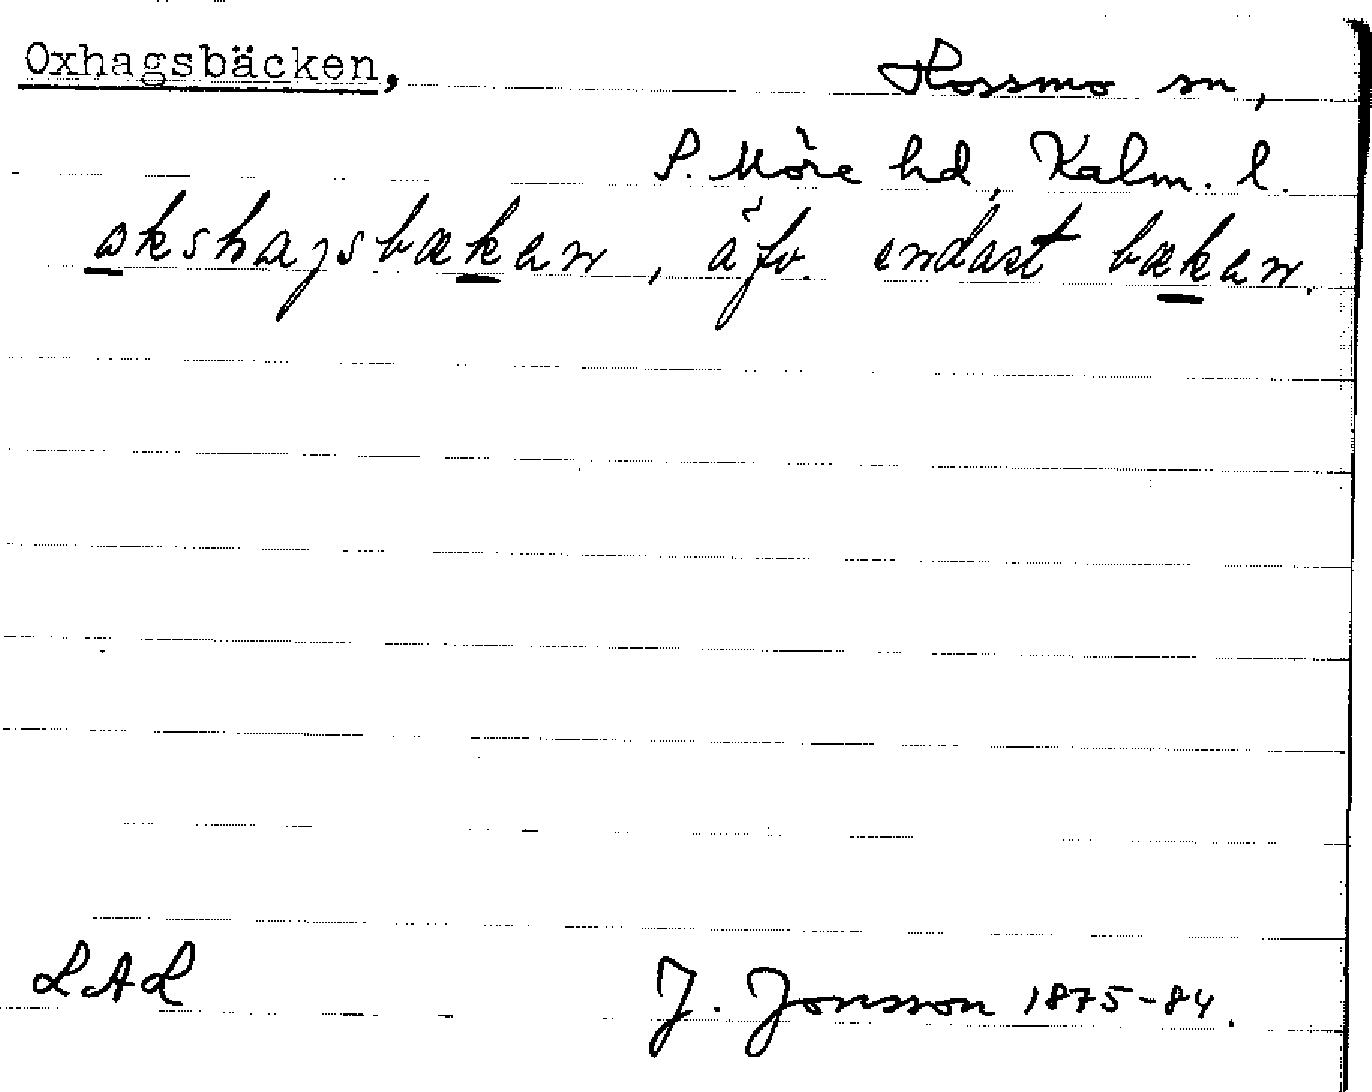 Oxhagsbäcken, Hossmo sn,
S. Möre hd, Kalm. l.
okshagsbækan, äfv. endast bækan.
LAL J. Jonsson 1875-84.